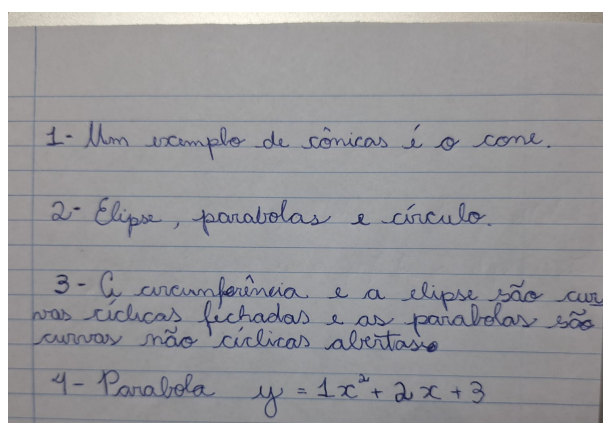 1- Um exemplo de cônicas é o cone.
2- Elipse, parabolas e círculo.
3- A circunferência e a elipse são cur
vas cíclicas fechadas e as parabolas são
curvas não cíclicas abertas.
4- Parabola y = 1x² + 2x + 3